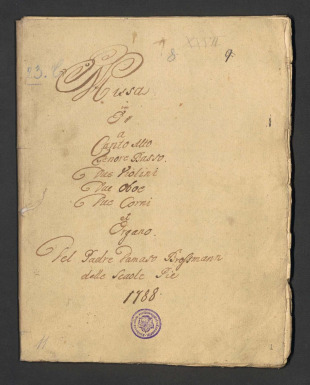 8 XXVII 9.
Missa
in
a
Canto Alto
Tenore Basso.
Due Violini
Due Oboe
Due Corni
et
Organo.
Del Padre Damaso Brosmann
delle Scuole Pie
1788.